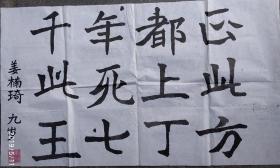 正此方
都上丁
年死七
千此王
姜楠琦 九岁